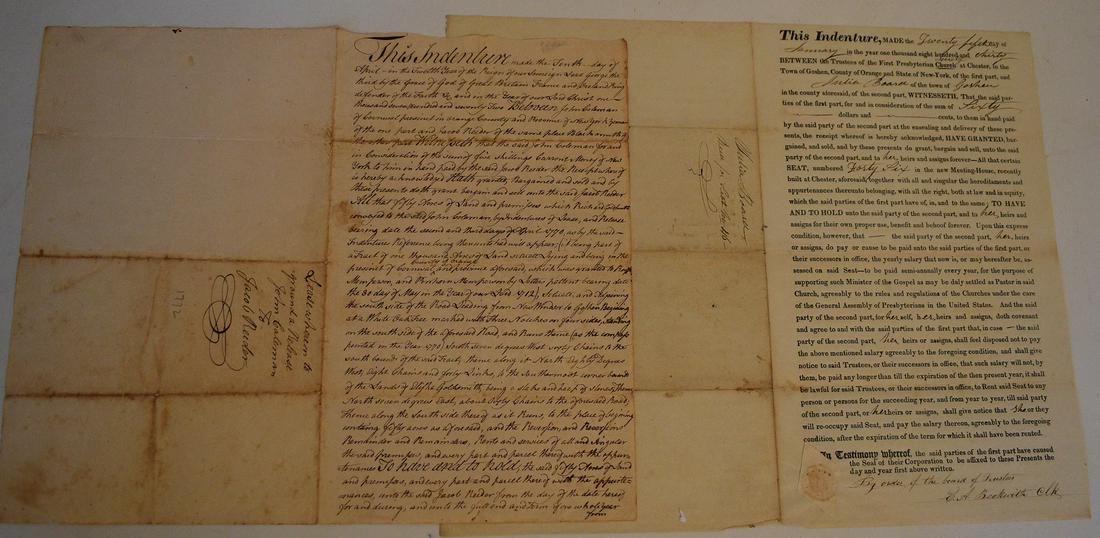 This Indenture made the Tenth day of
April in the Twelfth Year of the Reign of our Sovereign Lord George the
third by the grace of God of Great Britain France and Ireland King
defender of the Faith &c. and in the Year of our Lord Christ one
thousand seven hundred and seventy two Between John Coleman
of Cornwal precinct in orange County and Province of New york
of the one part and Jacob Reeder of the same place Blacksmith of
the other part Witnesseth that the said John Coleman for and
in Consideration of the sum of five Shillings Currant Money of New
York to him in hand paid by the said Jacob Reeder the Receipt whereof
is hereby acknowledged Hath granted, Bargained and sold and by
these presents doth grant bargain and sell unto the said Jacob Reeder
All that fifty Acres of Land and premises which Richard
conveyed to the said John Coleman, by Indentures of Lease, and Release
bearing date the second and third days of April 1770, as by the said
Indentures Reference being thereunto had will appear, (it being part of
a Tract of one thousand Acres of Land scituate Lying and being in the
county of orange
precinct of Cornwal, and province aforesaid, which was granted to
Mompesson, and Mompesson by Letters patent bearing date
the 30 day of May in the Year of our Lord 1712), scituate and Adjoining
the south side of the Road Leading from New Windsor to Goshen Begining
at a White Oak Tree marked with Three Notches on four sides, standing
on the south side of the aforesaid Road, and Runs thence (as the compass
pointed in the Year 1770) South seven degrees West sixty Chains to the
south bounds of the said Tract, thence along it North Eighty Degrees
West, Eight Chains and forty Links, to the Southermost corner bounds
of the Lands of Goldsmith, being a stake and heap of stones, thence
North seven degrees East, about sixty Chains to the aforesaid Road,
Thence along the South side thereof as it Runs, to the place of begining
containing fifty acres as aforesaid, and the Reversion, and Reversions
Remainder and Remainders, Rents and services of all and singular
the said premises, and every part and parcel thereof with the appur-
tenances To have and to hold, the said fifty Acres of Land
and premises, and every part and parcel thereof with the appurte-
nances, unto the said Jacob Reeder from the day of the date hereof
for and during, and unto the full end and term of one whole year
from
Lease
ground a Release
John Coleman
To
Jacob Reeder
1772
Board
This Indenture, MADE the Twenty fifth day of
January in the year one thousand eight hundred and thirty
BETWEEN the Trustees of the First Presbyterian Church at Chester, in the
Town of Goshen, County of Orange and State of New-York, of the first part, and
Board of the town of Goshen
in the county aforesaid, of the second part, WITNESSETH, That the said par-
ties of the first part, for and in consideration of the sum of Sixty
dollars and cents, to them in hand paid
by the said party of the second part at the ensealing and delivery of these pre-
sents, the receipt whereof is hereby acknowledged, HAVE GRANTED, bar-
gained, and sold, and by these presents do grant, bargain and sell, unto the said
party of the second part, and to her, heirs and assigns forever—All that certain
SEAT, numbered Forty Six in the new Meeting-House, recently
built at Chester, aforesaid, together with all and singular the hereditaments and
appurtenances thereunto belonging, with all the right, both at law and in equity,
which the said parties of the first part have of, in, and to the same; TO HAVE
AND TO HOLD unto the said party of the second part, and to her, heirs and
assigns for their own proper use, benefit and behoof forever. Upon this express
condition, however, that — the said party of the second part, her, heirs
or assigns, do pay or cause to be paid unto the said parties of the first part, or
their successors in office, the yearly salary that now is, or may hereafter be, as-
sessed on said Seat—to be paid semi-annually every year, for the purpose of
supporting such Minister of the Gospel as may be duly settled as Pastor in said
Church, agreeably to the rules and regulations of the Churches under the care
of the General Assembly of Presbyterians in the United States. And the said
party of the second part, for her self, her, heirs and assigns, doth covenant
and agree to and with the said parties of the first part that, in case — the said
party of the second part, her heirs or assigns, shall feel disposed not to pay
the above mentioned salary agreeably to the foregoing condition, and shall give
notice to said Trustees, or their successors in office, that such salary will not, by
them, be paid any longer than till the expiration of the then present year, it shall
be lawful for said Trustees, or their successors in office, to Rent said Seat to any
person or persons for the succeeding year, and from year to year, till said party
of the second part, or her heirs or assigns, shall give notice that she or they
will re-occupy said Seat, and pay the salary thereon, agreeably to the foregoing
condition, after the expiration of the term for which it shall have been rented.
In Testimony whereof, the said parties of the first part have caused
the Seal of their Corporation to be affixed to these Presents the
day and year first above written.
By order of the board of Trustees
Beckwith Clk